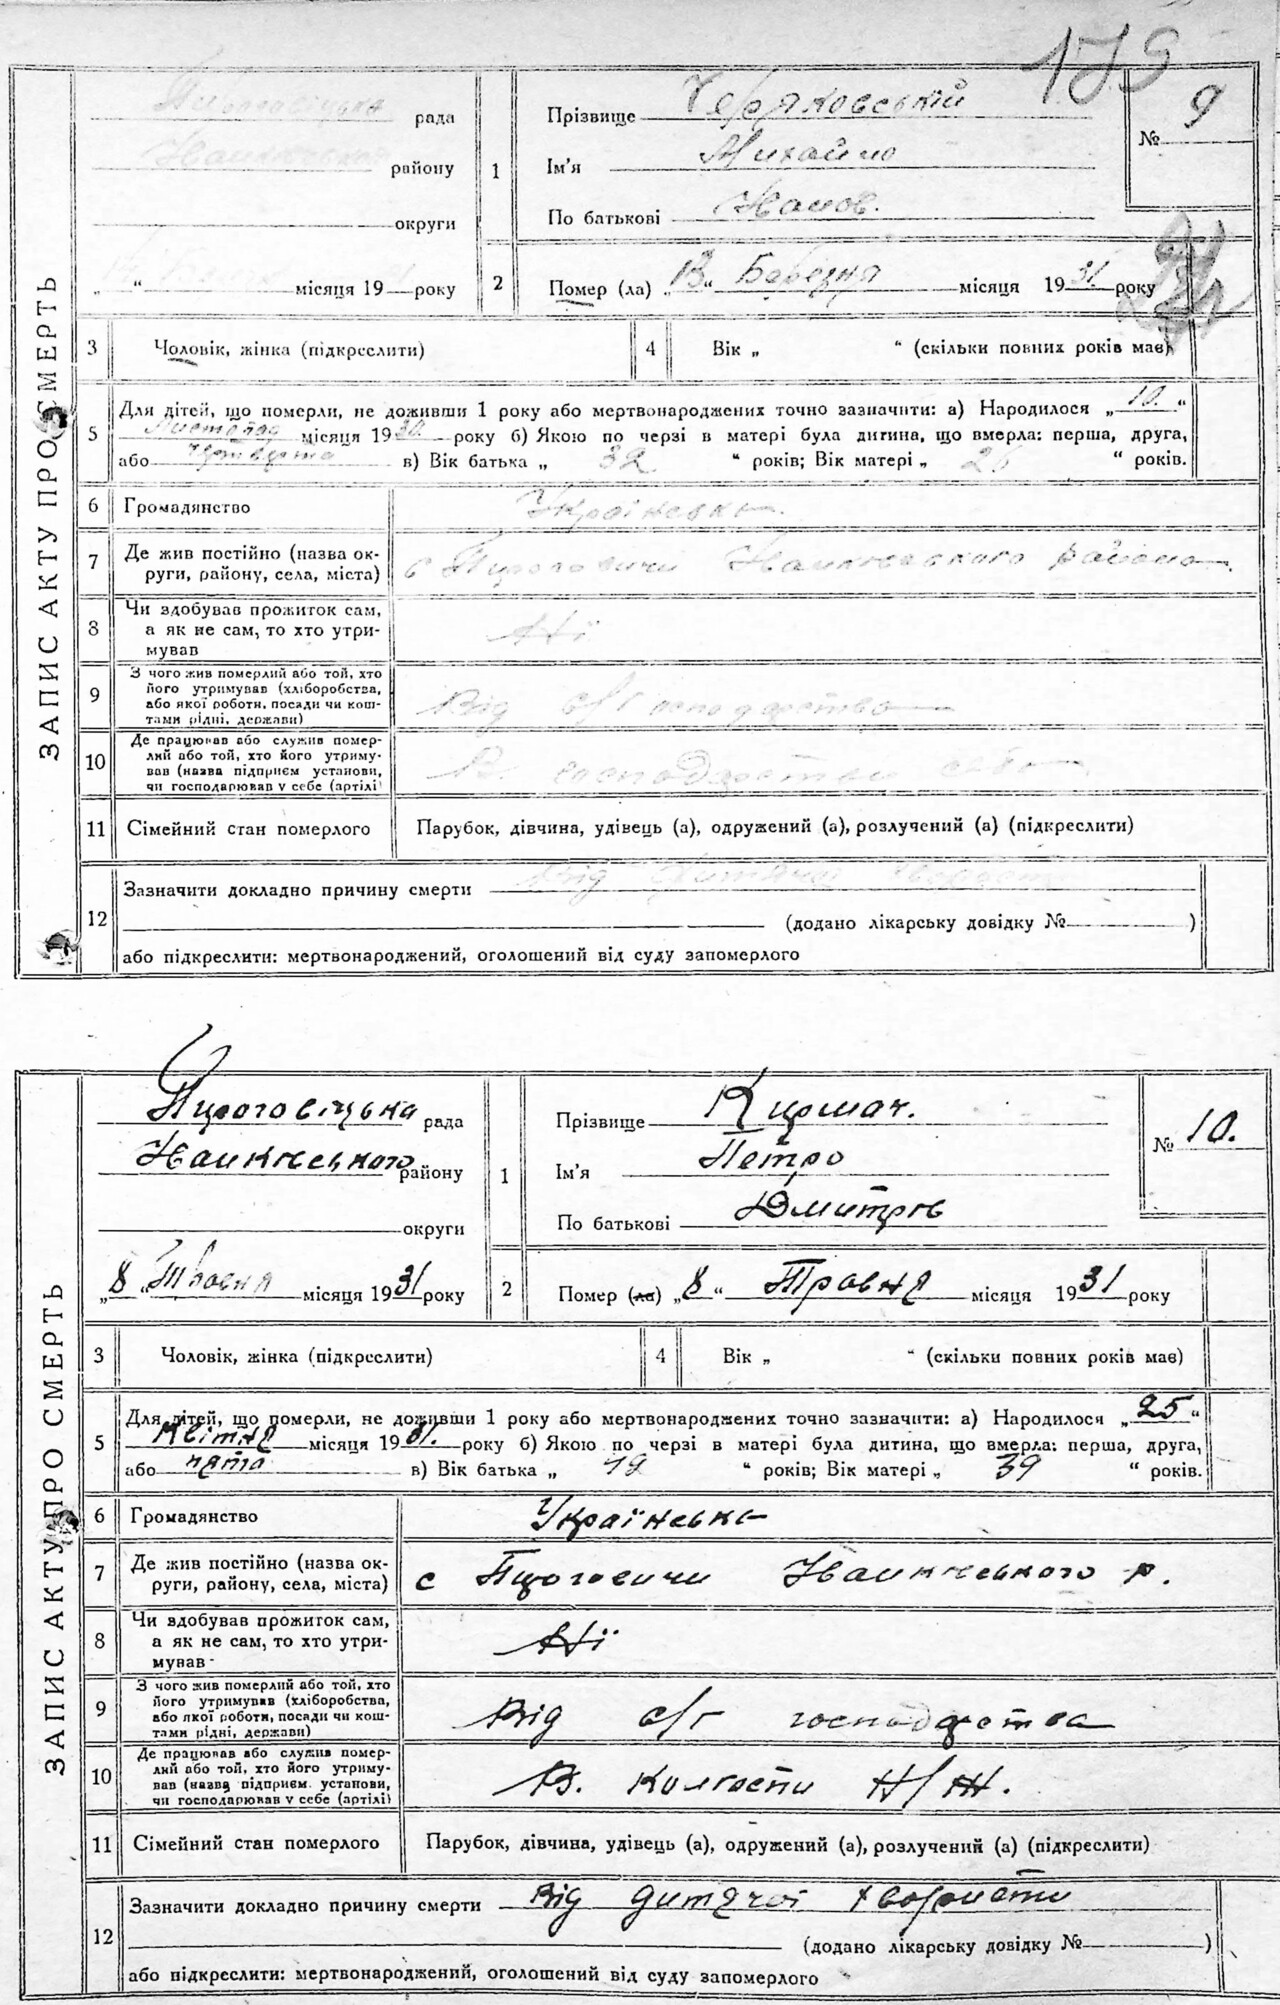 179
ЗАПИС АКТУ ПРО СМЕРТЬ
рада
району
округи
" " місяця 19 року
1
Прізвище
Ім'я Михайло
По батькові
№ 9
2
Помер (ла) " " Березня місяця 1931 року
3 Чоловік, жінка (підкреслити)
4 Вік " " (скільки повних років має)
5 Для дітей, що померли, не доживши 1 року або мертвонароджених точно зазначити: а) Народилося „10."
Листопад місяця 1930. року б) Якою по черзі в матері була дитина, що вмерла: перша, друга,
або четверта в) Вік батька „ 32 " років; Вік матері „ 26 " років.
6 Громадянство Українська
7 Де жив постійно (назва ок-
руги, району, села, міста)
с
8 Чи здобував прожиток сам,
а як не сам, то хто утри-
мував
Ні
9 З чого жив померлий або той, хто
його утримував (хліборобства,
або якої роботи, посади чи кош-
тами рідні, держави)
Від с/г господарства
10 Де працював або служив помер-
лий або той, хто його утриму-
вав (назва підприєм установи,
чи господарював у себе (артілі)
В господарстві
11 Сімейний стан померлого Парубок, дівчина, удівець (а), одружений (а), розлучений (а) (підкреслити)
12 Зазначити докладно причину смерти Від дитячої
(додано лікарську довідку № )
або підкреслити: мертвонароджений, оголошений від суду запомерлого
ЗАПИС АКТУ ПРО СМЕРТЬ
рада
району
округи
„8" Травня місяця 1931 року
1
Прізвище
Ім'я Петро
По батькові Дмитров
№ 10.
2
Помер (ла) „8" Травня місяця 1931 року
3 Чоловік, жінка (підкреслити)
4 Вік „ " (скільки повних років має)
5 Для дітей, що померли, не доживши 1 року або мертвонароджених точно зазначити: а) Народилося „25"
Квітня місяця 1931. року б) Якою по черзі в матері була дитина, що вмерла: перша, друга,
або пята в) Вік батька „ " років; Вік матері „ 39 " років.
6 Громадянство Українська
7 Де жив постійно (назва ок-
руги, району, села, міста)
с
8 Чи здобував прожиток сам,
а як не сам, то хто утри-
мував
Ні
9 З чого жив померлий або той, хто
його утримував (хліборобства,
або якої роботи, посади чи кош-
тами рідні, держави)
Від с/г господарства
10 Де працював або служив помер-
лий або той, хто його утриму-
вав (назва підприєм. установи,
чи господарював у себе (артілі)
В.
11 Сімейний стан померлого Парубок, дівчина, удівець (а), одружений (а), розлучений (а) (підкреслити)
12 Зазначити докладно причину смерти Від дитячої
(додано лікарську довідку № )
або підкреслити: мертвонароджений, оголошений від суду запомерлого